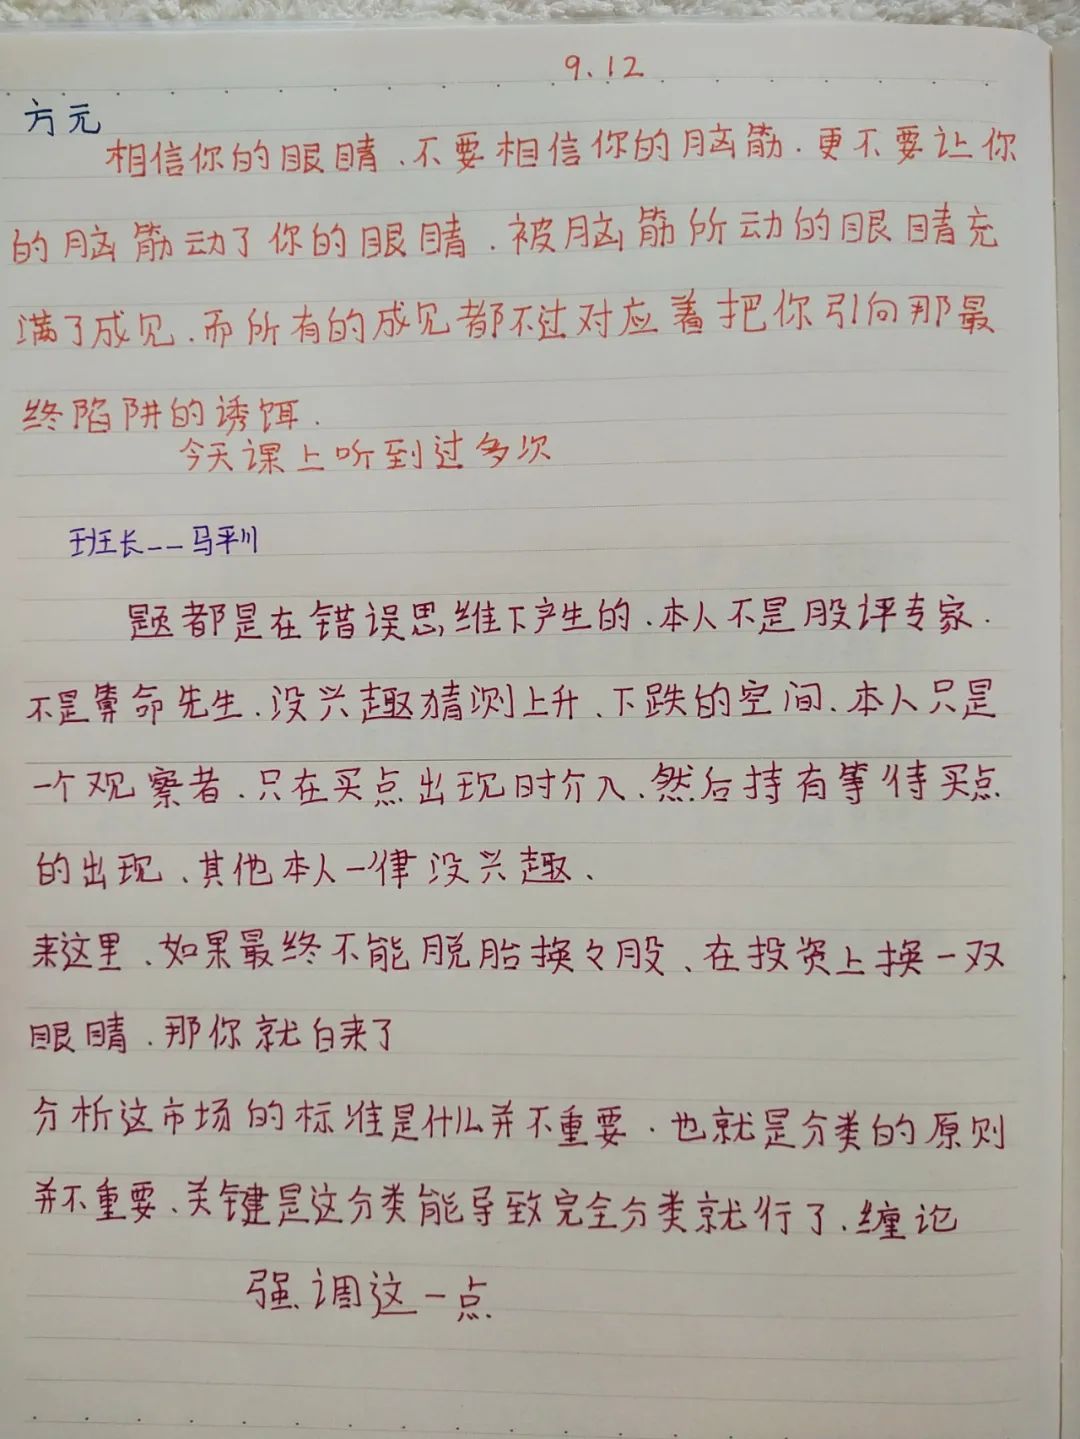 9.12
方元
相信你的眼睛.不要相信你的脑筋.更不要让你
的脑筋动了你的眼睛.被脑筋所动的眼睛充
满了成见.而所有的成见都不过对应着把你引向那最
终陷阱的诱饵.
今天课上听到过多次
班长——马平川
题都是在错误思维下产生的.本人不是股评专家.
不是算命先生、没兴趣猜测上升、下跌的空间、本人只是
一个观察者.只在买点出现时介入、然后持有等待买点
的出现、其他本人一律没兴趣、
来这里、如果最终不能脱胎换々股、在投资上换一双
眼睛.那你就白来了
分析这市场的标准是什么并不重要.也就是分类的原则
并不重要、关键是这分类能导致完全分类就行了.缠论
强调这一点